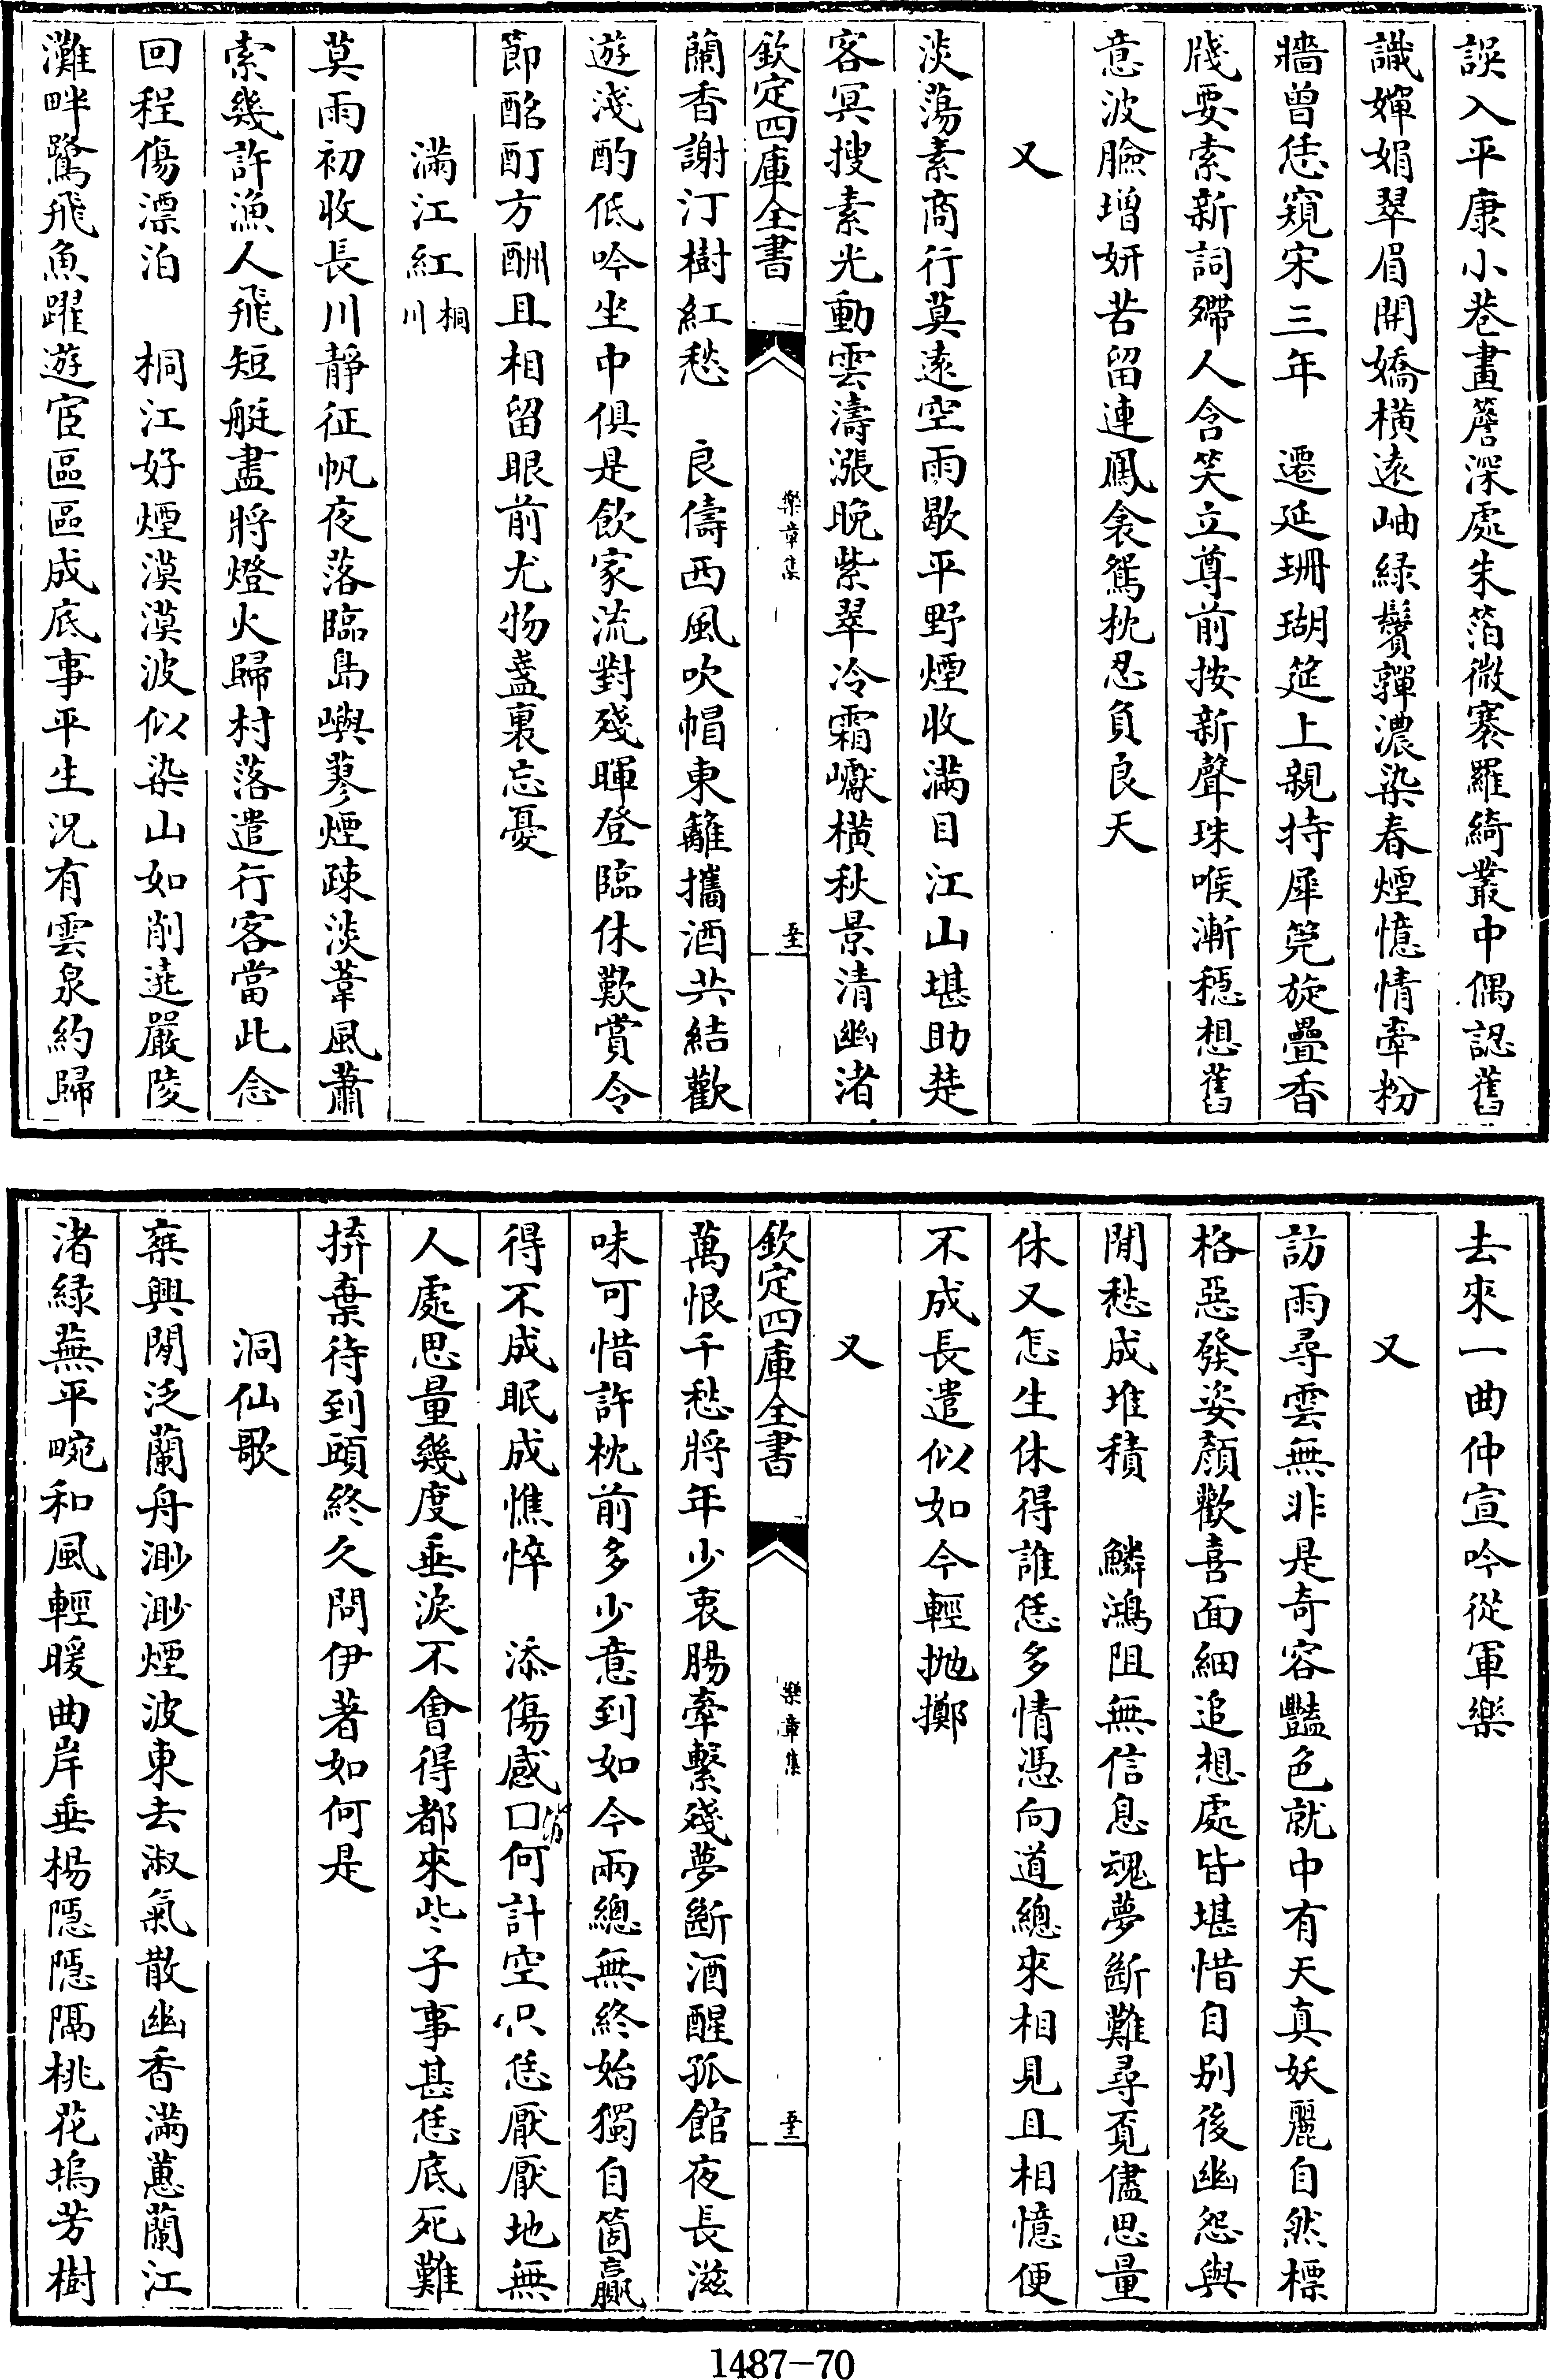 誤入平康小巷畫簷深處朱箔微褰羅綺叢中偶認舊
識嬋娟翠眉開嬌橫遠岫綠鬢嚲濃染春煙憶情牽粉
牆曾恁窺宋三年　遷延珊瑚筵上親持犀筦旋疊香
牋要索新詞殢人含笑立尊前按新聲珠喉漸穩想舊
意波臉增妍苦留連鳳衾鴛枕忍負良天
又
淡蕩素商行莫遠空雨歇平野煙收滿目江山堪助楚
客冥搜素光動雲濤漲晚紫翠冷霜巘橫秋景清幽渚
欽定四庫全書
樂章集
五十
蘭香謝汀樹紅愁　良儔西風吹帽東籬攜酒共結歡
遊淺酌低吟坐中俱是飲家流對殘暉登臨休歎賞令
節酩酊方酬且相留眼前尤物盞裏忘憂
滿江紅桐川
莫雨初收長川靜征帆夜落臨島嶼蓼煙疎淡葦風蕭
索幾許漁人飛短艇盡將燈火歸村落遣行客當此念
回程傷漂泊　桐江好煙漠漠波似染山如削遶嚴陵
灘畔鷺飛魚躍遊宦區區成底事平生況有雲泉約歸
去來一曲仲宣吟從軍樂
又
訪雨尋雲無非是奇容豔色就中有天真妖麗自然標
格惡發姿顏歡喜面細追想處皆堪惜自別後幽怨與
閒愁成堆積　鱗鴻阻無信息魂夢斷難尋覓儘思量
休又怎生休得誰恁多情憑向道總來相見且相憶便
不成長遣似如今輕拋擲
又
欽定四庫全書
樂章集
萬恨千愁將年少衷腸牽繫殘夢斷酒醒孤館夜長滋
味可惜許枕前多少意到如今兩總無終始獨自箇贏
得不成眠成憔悴　添傷感口何計空只恁厭厭地無
人處思量幾度垂淚不會得都來些子事甚恁底死難
拚棄待到頭終久問伊著如何是
洞仙歌
棄興閒泛蘭舟渺渺煙波東去淑氣散幽香滿蕙蘭江
渚綠蕪平畹和風輕暖曲岸垂楊隱隱隔桃花塢芳樹
1487-70